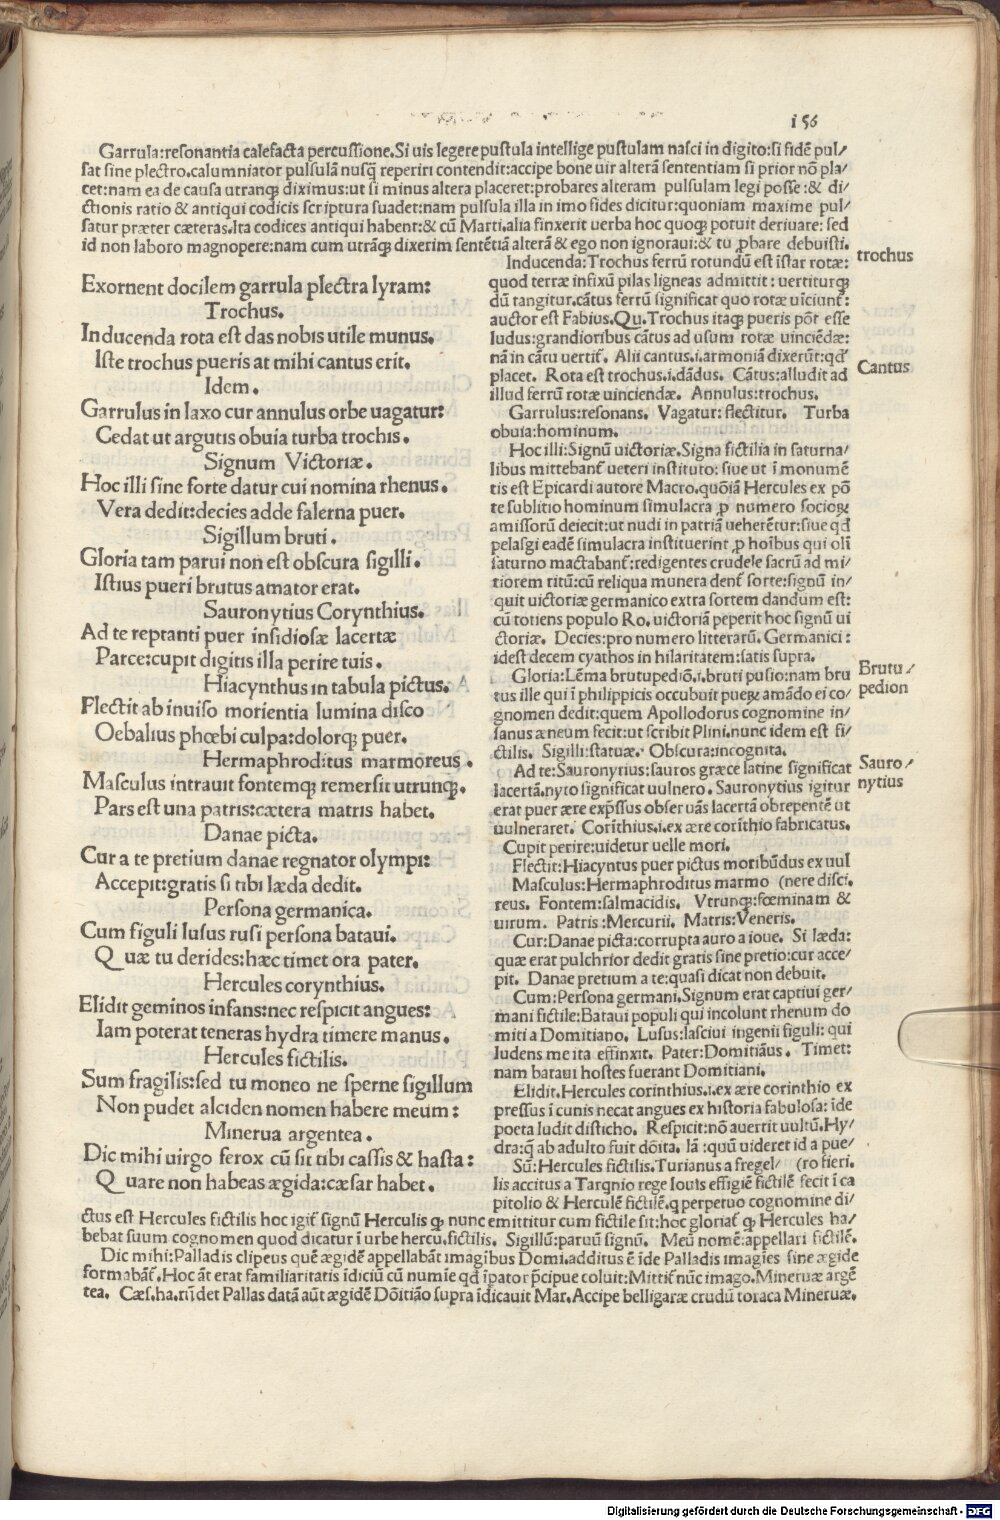 i 56
Garrula:resonantia calefacta percussione.Si uis legere pustula intellige pustulam nasci in digito:si fidẽ pul/
sat sine plectro.calumniator pulsulã nusq̃ reperiri contendit:accipe bone uir alterã sententiam si prior nõ pla/
cet:nam ea de causa utranq; diximus:ut si minus altera placeret:probares alteram pulsulam legi posse:& di/
ctionis ratio & antiqui codicis scriptura suadet:nam pulsula illa in imo fides dicitur:quoniam maxime pul/
satur præter cæteras.Ita codices antiqui habent:& cũ Marti.alia finxerit uerba hoc quoq; potuit deriuare:sed
id non laboro magnopere:nam cum utrãq; dixerim sentẽtiã alterã & ego non ignoraui:& tu ꝓbare debuisti.
Exornent docilem garrula plectra lyram:
Trochus.
Inducenda rota est das nobis utile munus.
Iste trochus pueris at mihi cantus erit.
Idem.
Garrulus in laxo cur annulus orbe uagatur:
Cedat ut argutis obuia turba trochis.
Signum Victoriæ.
Hoc illi sine sorte datur cui nomina rhenus.
Vera dedit:decies adde falerna puer.
Sigillum bruti.
Gloria tam parui non est obscura sigilli.
Istius pueri brutus amator erat.
Sauronytius Corynthius.
Ad te reptanti puer insidiosæ lacertæ
Parce:cupit digitis illa perire tuis.
Hiacynthus in tabula pictus.
Flectit ab inuiso morientia lumina disco
Oebalius phœbi culpa:dolorq; puer.
Hermaphroditus marmoreus.
Masculus intrauit fontemq; remersit utrunq;.
Pars est una patris:cætera matris habet.
Danae picta.
Cur a te pretium danae regnator olympi:
Accepit:gratis si tibi læda dedit.
Persona germanica.
Cum figuli lusus rusi persona bataui.
Quæ tu derides:hæc timet ora pater.
Hercules corynthius.
Elidit geminos infans:nec respicit angues:
Iam poterat teneras hydra timere manus.
Hercules fictilis.
Sum fragilis:sed tu moneo ne sperne sigillum
Non pudet alciden nomen habere meum:
Minerua argentea.
Dic mihi uirgo ferox cũ sit tibi cassis & hasta:
Quare non habeas ægida:cæsar habet.
Inducenda:Trochus ferrũ rotundũ est ĩstar rotæ:
quod terræ infixũ pilas ligneas admittit:uertiturq;
dũ tangitur.cãtus ferrũ significat quo rotæ uĩciunt̃:
auctor est Fabius.Qu.Trochus itaq; pueris põt esse
ludus:grandioribus cãtus ad usum rotæ uinciẽdæ:
nã in cãtu uertit̃. Alii cantus.i.armoniã dixerũt:qd̃
placet. Rota est trochus.i.dãdus. Cãtus:alludit ad
illud ferrũ rotæ uinciendæ. Annulus:trochus.
Garrulus:resonans. Vagatur:flectitur. Turba
obuia:hominum.
Hoc illi:Signũ uictoriæ.Signa fictilia in saturna/
libus mittebant̃ ueteri instituto:siue ut ĩ monumẽ
tis est Epicardi autore Macro.quõiã Hercules ex põ
te sublitio hominum simulacra ꝓ numero socioꝝ
amissorũ deiecit:ut nudi in patriã ueherẽtur:siue qd̃
pelasgi eadẽ simulacra instituerint ꝓ hoĩbus qui olĩ
saturno mactabant̃:redigentes crudele sacrũ ad mi/
tiorem ritũ:cũ reliqua munera dent̃ sorte:signũ in/
quit uictoriæ germanico extra sortem dandum est:
cũ totiens populo Ro.uictoriã peperit hoc signũ ui
ctoriæ. Decies:pro numero litterarũ.Germanici:
idest decem cyathos in hilaritatem:satis supra.
Gloria:Lẽma brutupediõ.i.bruti pusio:nam bru
tus ille qui ĩ philippicis occubuit pueꝝ amãdo ei co/
gnomen dedit:quem Apollodorus cognomine in/
sanus æneum fecit:ut scribit Plini.nunc idem est fi/
ctilis. Sigilli:statuæ. Obscura:incognita.
Ad te:Sauronytius:sauros græce latine significat
lacertã.nyto significat uulnero.Sauronytius igitur
erat puer ære exp̃ssus obseruãs lacertã obrepentẽ ut
uulneraret. Corĩthius.i.ex ære corĩthio fabricatus.
Cupit perire:uidetur uelle mori.
Flectit:Hiacyntus puer pictus moribũdus ex uul
Masculus:Hermaphroditus marmo (nere disci.
reus. Fontem:salmacidis. Vtrunq;:fœminam &
uirum. Patris:Mercurii. Matris:Veneris.
Cur:Danae picta:corrupta auro a ioue. Si læda:
quæ erat pulchrior dedit gratis sine pretio:cur acce/
pit. Danae pretium a te:quasi dicat non debuit.
Cum:Persona germani.Signum erat captiui ger/
mani fictile:Bataui populi qui incolunt rhenum do
miti a Domitiano. Lusus:lasciui ingenii figuli:qui
ludens me ita effinxit. Pater:Domitiãus. Timet:
nam bataui hostes fuerant Domitiani.
Elidit.Hercules corinthius.i.ex ære corinthio ex
pressus ĩ cunis necat angues ex historia fabulosa:ĩde
poeta ludit disticho. Respicit:nõ auertit uultũ.Hy/
dra:q̃ ab adulto fuit dõita. Iã:quũ uideret id a pue/
Sũ:Hercules fictilis.Turianus a fregel/ (ro fieri.
lis accitus a Tarqnio rege Iouis effigiẽ fictilẽ fecit ĩ ca
pitolio & Herculẽ fictilẽ.q perpetuo cognomine di/
ctus est Hercules fictilis hoc igit̃ signũ Herculis qꝫ nunc emittitur cum fictile sit:hoc gloriat̃ qꝫ Hercules ha/
bebat suum cognomen quod dicatur ĩ urbe hercu.fictilis. Sigillũ:paruũ signũ. Meũ nomẽ:appellari fictilẽ.
Dic mihi:Palladis clipeus quẽ ægidẽ appellabãt imagĩbus Domi.additus ẽ ĩde Palladis imagĩes sine ægide
formabãt̃.Hoc ãt erat familiaritatis ĩdiciũ cũ numĩe qd̃ ĩpator p̃cipue coluit:Mittit̃ nũc imago.Mineruæ argẽ
tea. Cæs.ha.rũ det Pallas datã aũt ægidẽ Dõitião supra ĩdicauit Mar.Accipe belligaræ crudũ toraca Mineruæ.
trochus
Cantus
Brutu/
pedion
Sauro/
nytius
Digitalisierung gefördert durch die Deutsche Forschungsgemeinschaft - DFG